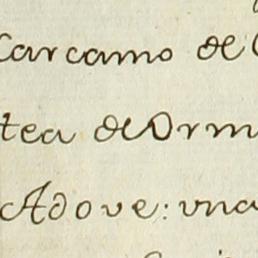 Carcamo de
tea de Orm
Adove: vna